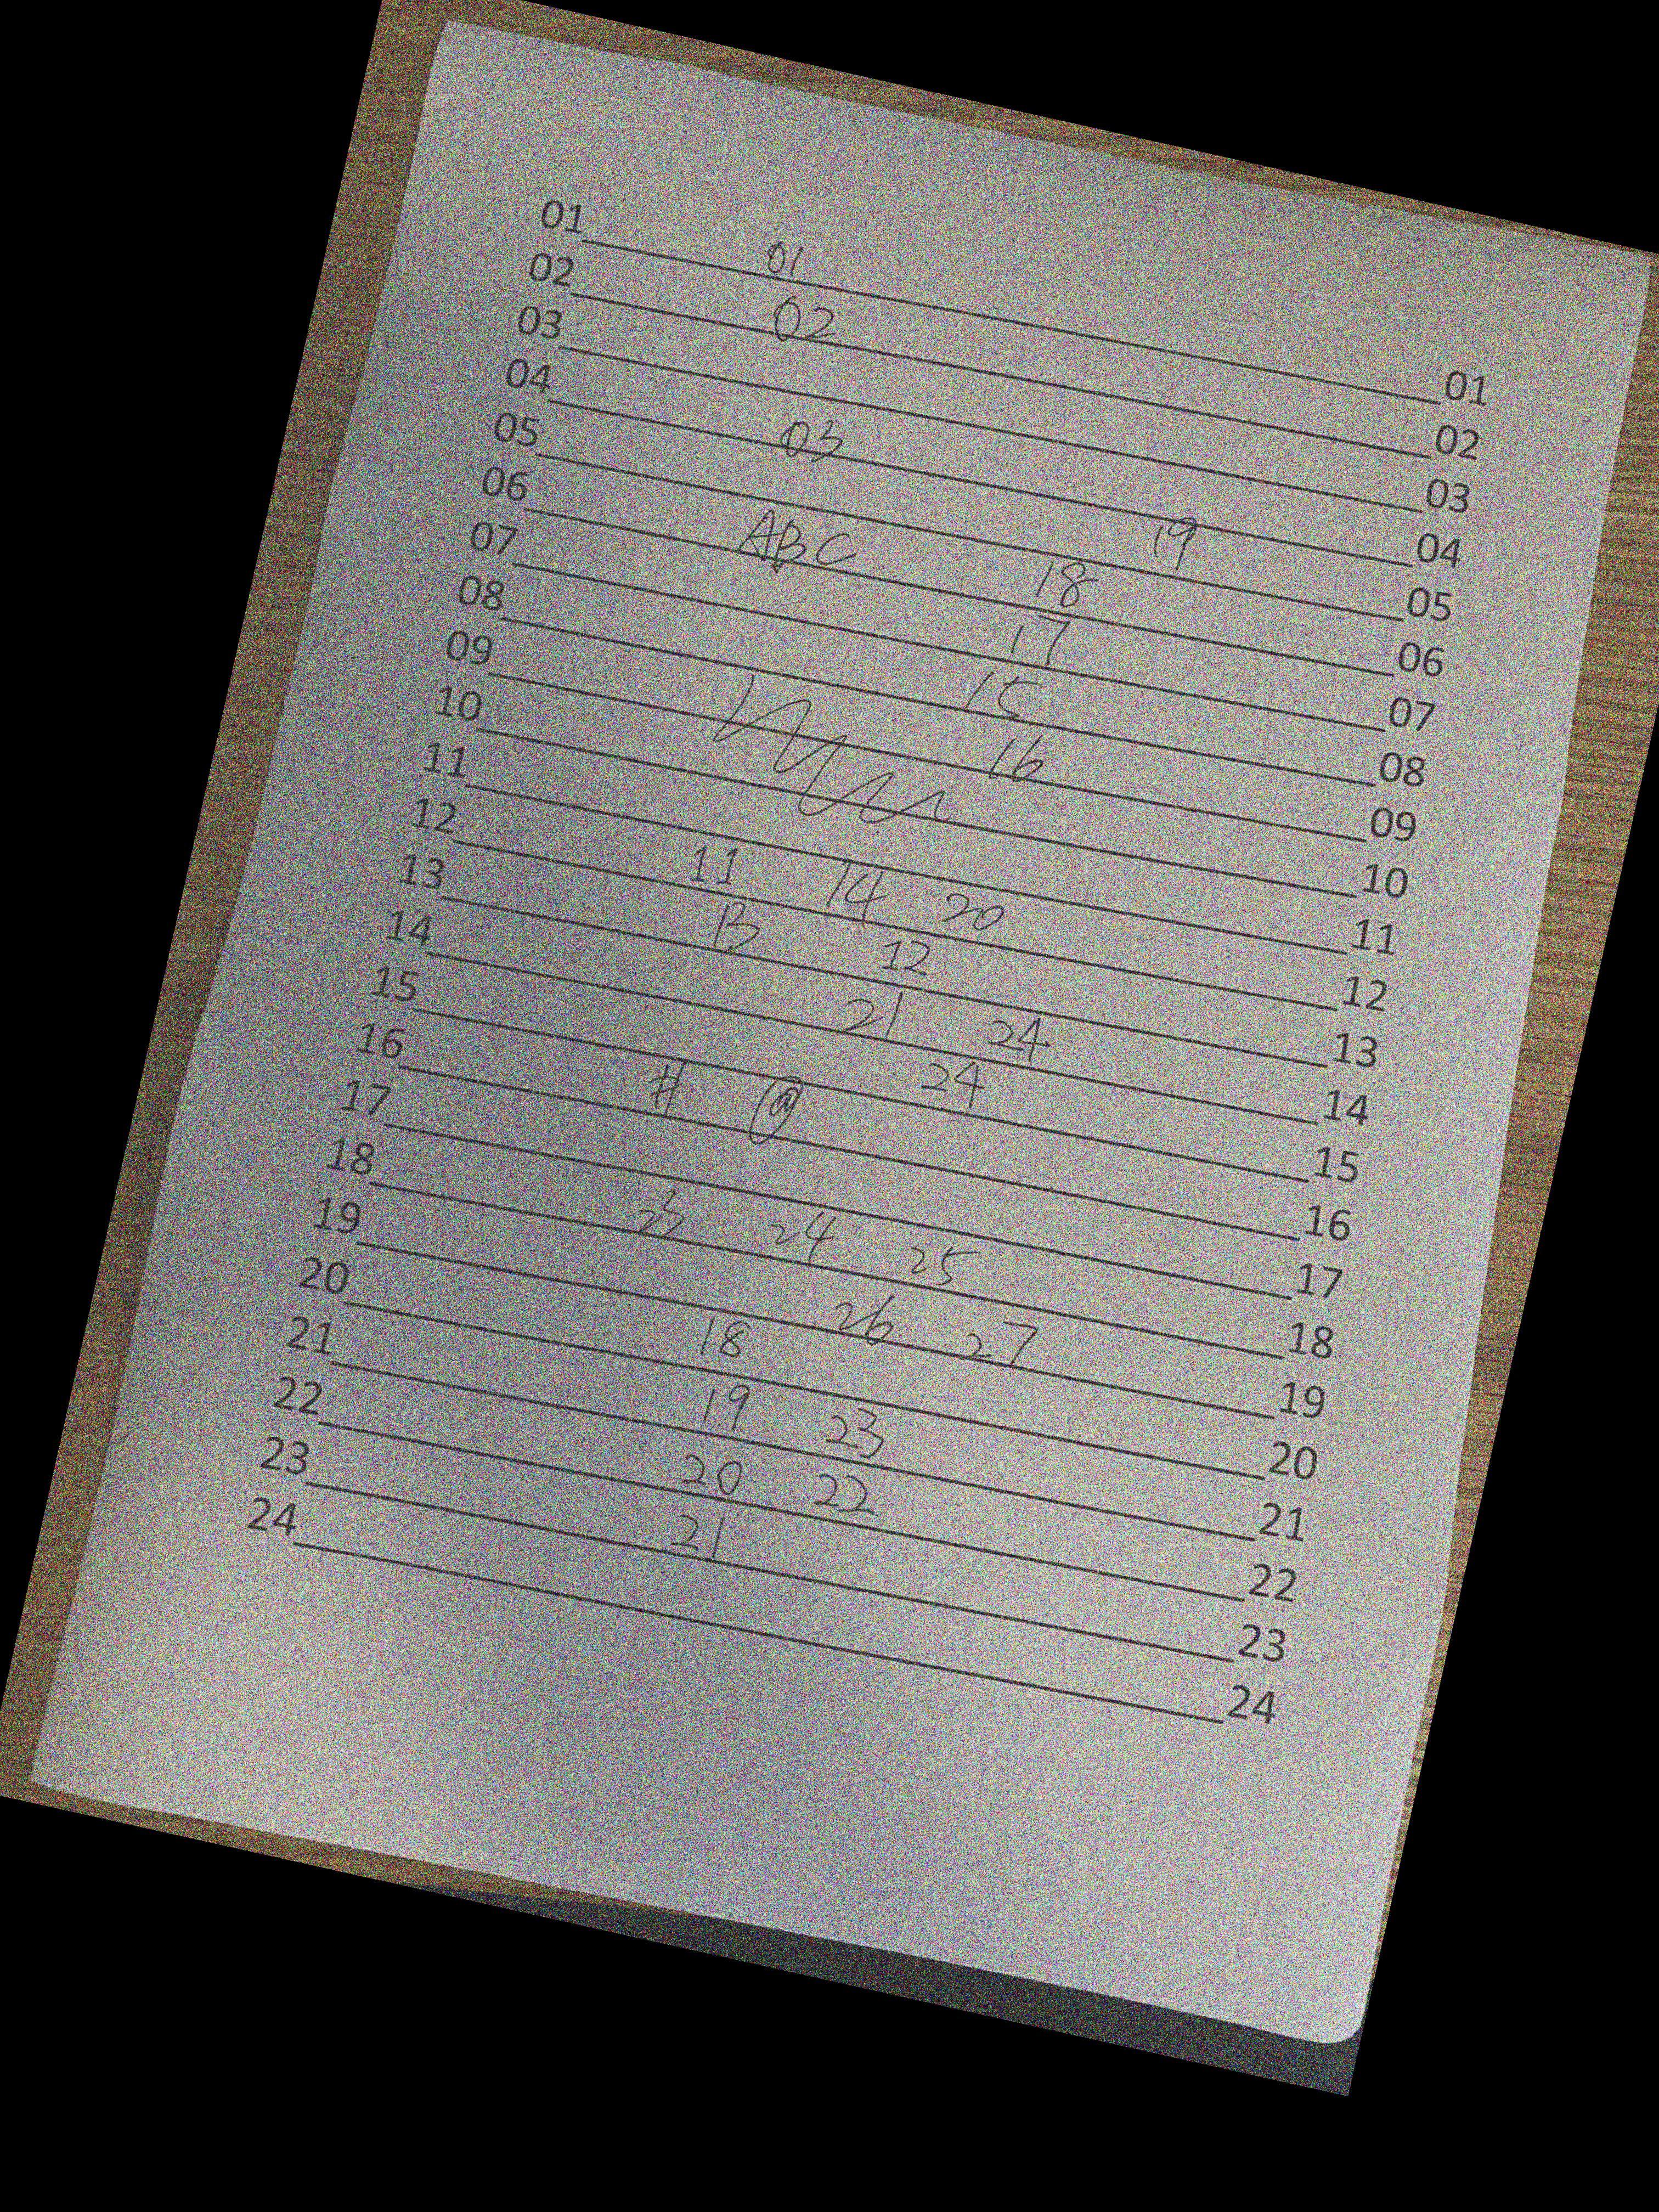 01 01 01
02 02 02
03 03
04 03 04
05 19 05
06 ABC 18 06
07 17 07
08 15 08
09 16 09
10 10
11 11
12 11 14 20 12
13 13 12 13
14 21 24 14
15 24 15
16 # @ 16
17 17
18 23 24 25 18
19 26 27 19
20 18 20
21 19 23 21
22 20 22 22
23 21 23
24 24